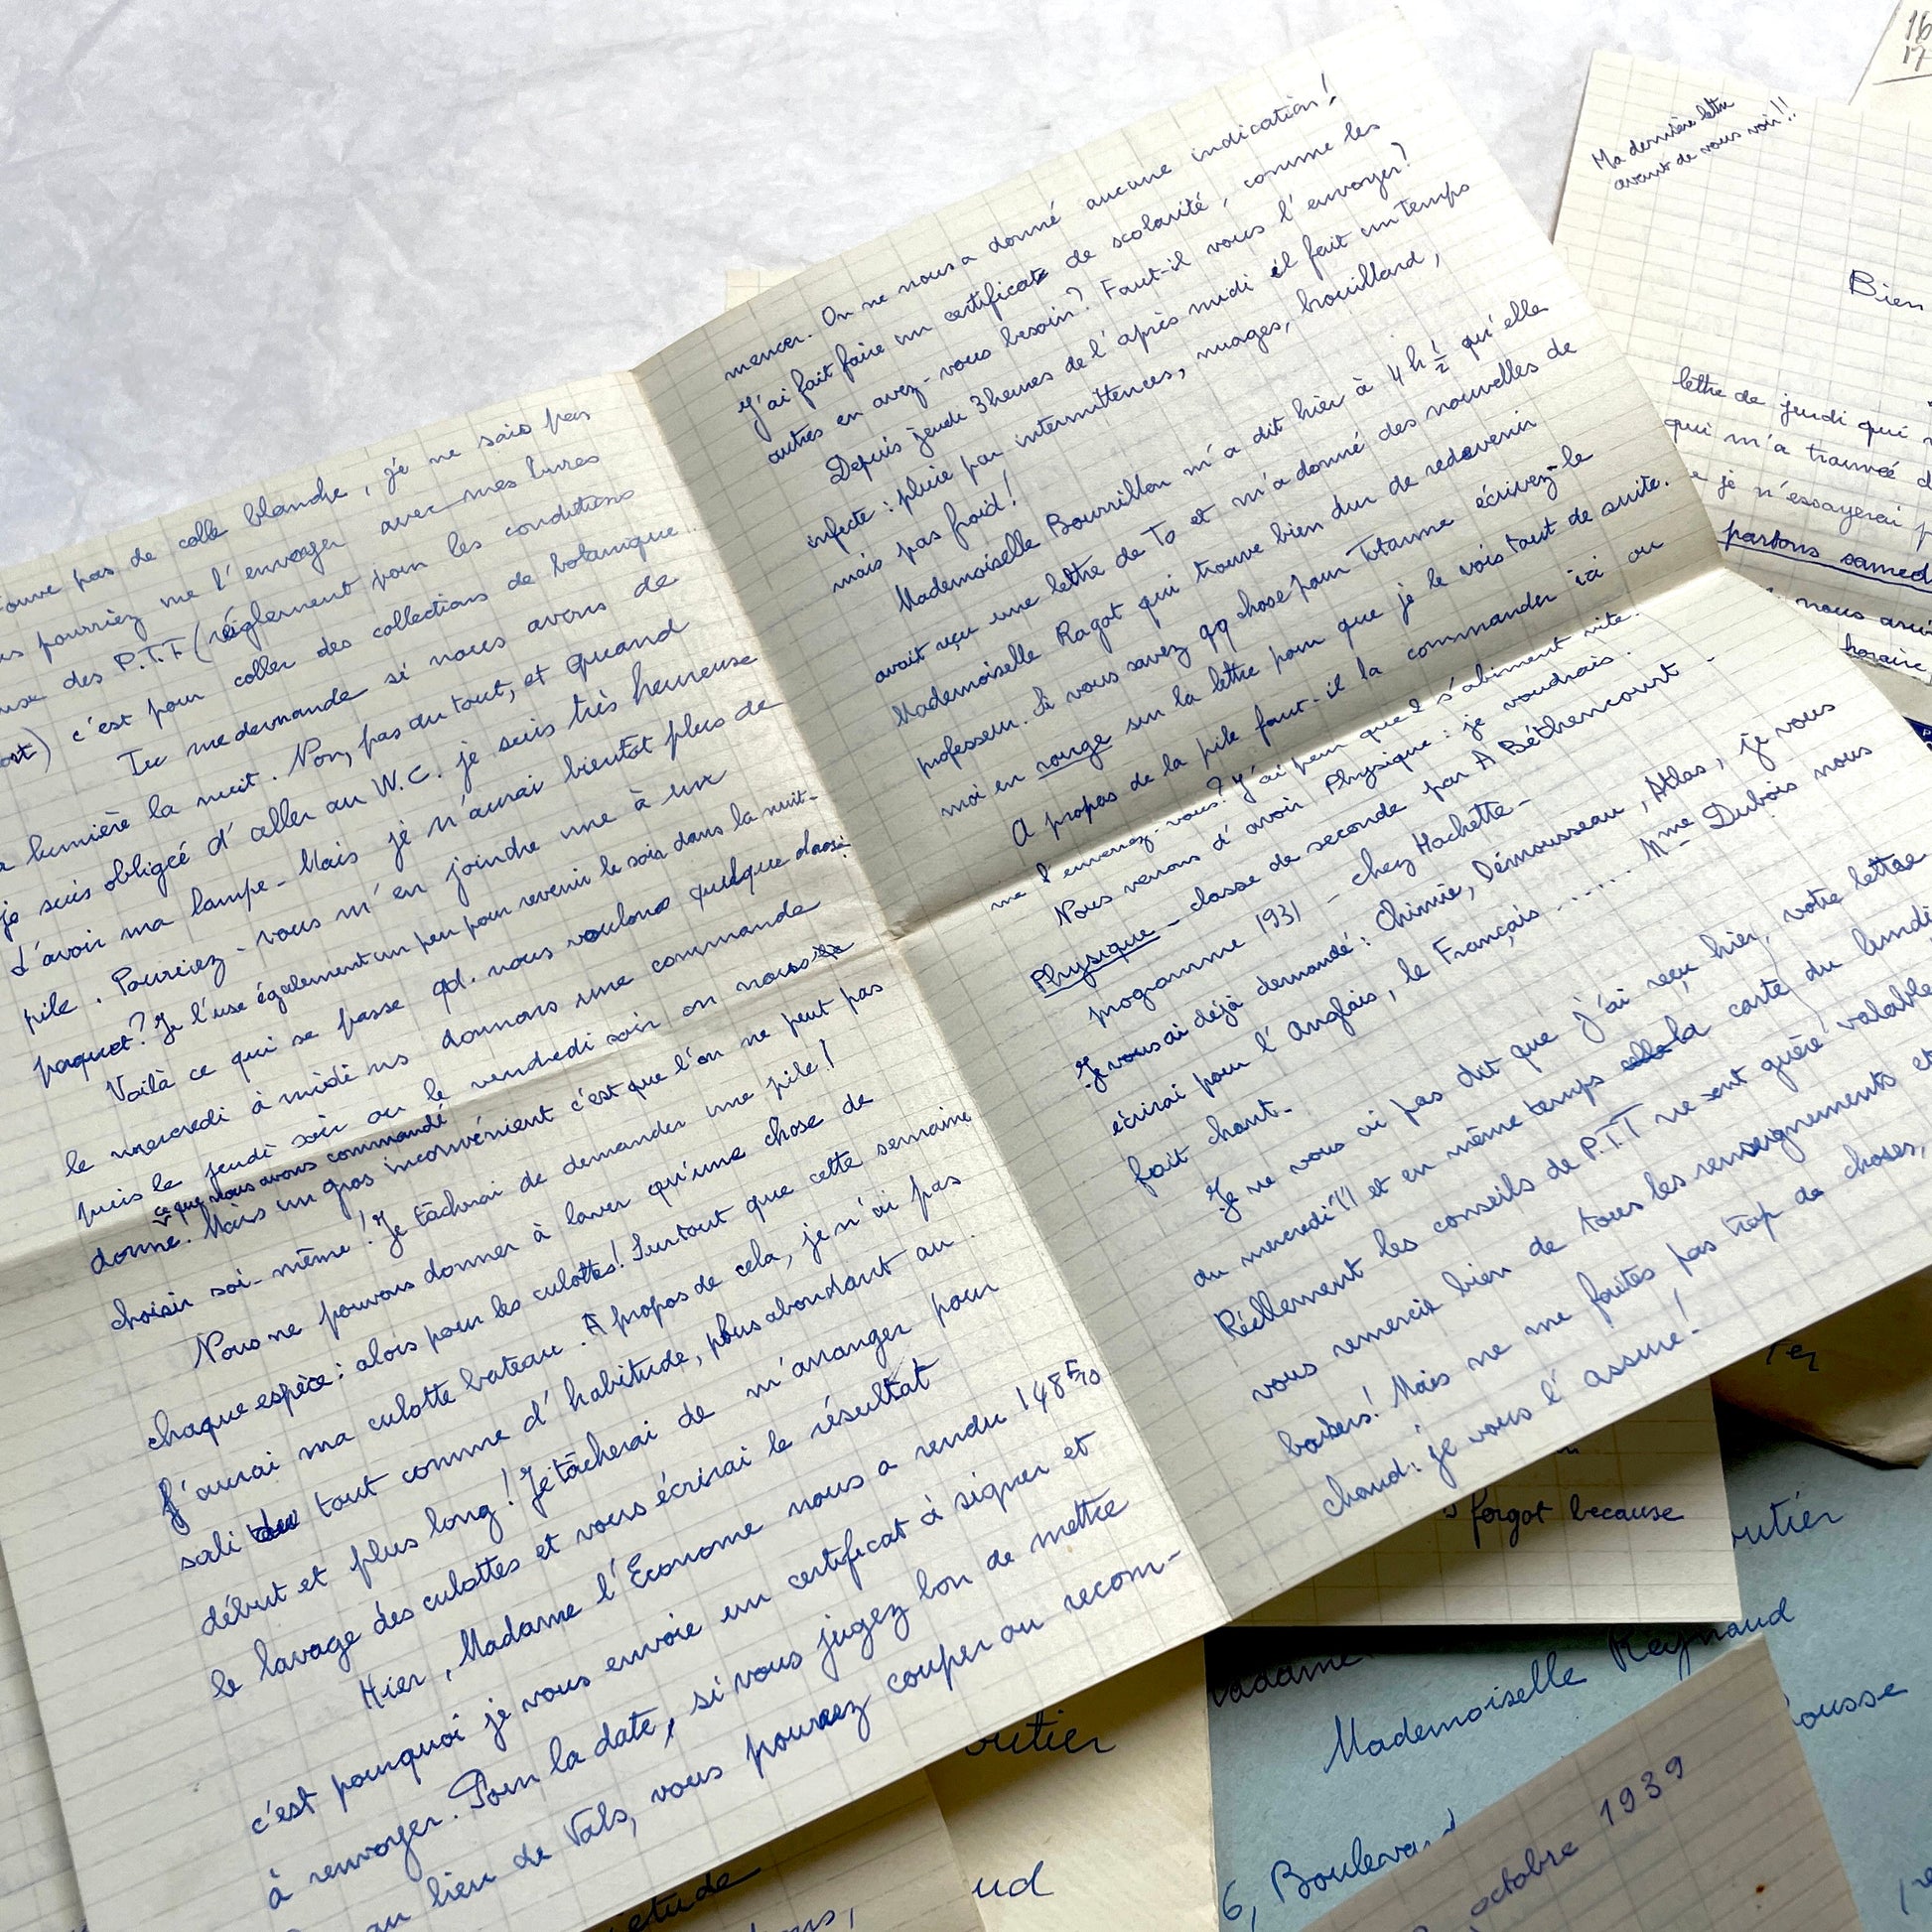 pas de colle blanche, je ne sais pas
pourriez me l'envoyer avec mes livres
des P.T.T (réglement pour les conditions
c'est pour coller des collections de botanique.
Tu me demande si nous avons de
lumière la nuit. Non, pas du tout, et quand
je suis obligée d'aller au W.C. je suis très heureuse
d'avoir ma lampe. Mais je n'aurai bientôt plus de
pile. Pourriez-vous m'en joindre une à un
paquet? Je l'use également un peu pour revenir le soir dans la nuit.
Voilà ce qui se passe qd. nous voulons quelque chose:
le mercredi à midi ns donnons une commande
puis le jeudi soir ou le vendredi soir on nous
ce que nous avons commandé
donne. Mais un gros inconvénient c'est que l'on ne peut pas
choisir soi-même! Je tâcherai de demander une pile!
Nous ne pouvons donner à laver qu'une chose de
chaque espèce: alors pour les culottes! Surtout que cette semaine
j'aurai ma culotte bateau. A propos de cela, je n'ai pas
sali du tout comme d'habitude, plus abondant au
début et plus long! Je tâcherai de m'arranger pour
le lavage des culottes et vous écrirai le résultat
Hier, Madame l'Econome nous a rendu 148F,10
c'est pourquoi je vous envoie un certificat à signer et
à renvoyer. Pour la date, si vous jugez bon de mettre
au lieu de Vals, vous pourrez couper ou recom-
mencer. On ne nous a donné aucune indication!
J'ai fait faire un certificat de scolarité, comme les
autres en avez-vous besoin? Faut-il vous l'envoyer?
Depuis jeudi 3 heures de l'après midi il fait un temps
infecte: pluie par intermittences, nuages, brouillard,
mais pas froid!
Mademoiselle Bourrillon m'a dit hier à 4 h ½ qu'elle
avait reçu une lettre de To et m'a donné des nouvelles de
Mademoiselle Ragot qui trouve bien dur de redevenir
professeur. Si vous savez qq chose pour Totanne écrivez-le
moi en rouge sur la lettre pour que je le vois tout de suite.
A propos de la pile faut-il la commander ici ou
me l'enverrez-vous? J'ai peur que 2 s'abîment vite.
Nous venons d'avoir Physique: je voudrais.
Physique - classe de seconde par A Béthencourt -
programme 1931 - chez Hachette -
Je vous ai déjà demandé: Chimie, Démousseau, Atlas, je vous
écrirai pour l'Anglais, le Français ...... Mme Dubois nous
fait chant.
Je ne vous ai pas dit que j'ai reçu hier, votre lettre
du mercredi 11 et en même temps la carte du lundi
Réellement les conseils de P.T.T ne sont guère valable
vous remercie bien de tous les renseignements et
baisers! Mais ne me faites pas trop de choses,
chaud: je vous l'assure!
16
17
Ma dernière lettre
avant de vous voir!!
Bien
lettre de jeudi qui
qui m'a trouvée
je n'essayerai
partons samedi
nous
horaire
forgot because
Madame
Mademoiselle Reynaud
6, Boulevard
octobre 1939